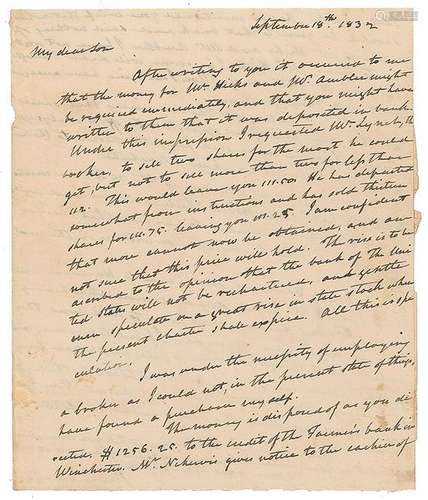 September 18th. 1832
My dear son
After writing to you it occured to me
that the money for Mr. Hicks and Mr. Ambler might
be required immediately, and that you might have
written to them that it was deposited in bank.
Under this impression I requested Mr. Lynch, the
broker, to sell two shares for the most he could
get, but not to sell more than two for less than
112. This would leave you 111.50. He has departed
somewhat from instructions and has sold thirteen
shares for 111.75. leaving you 111.25. I am confident
that more cannot now be obtained, and am
not sure that this price will hold. The rise is to be
ascribed to the opinion that the bank of the Uni
ted States will not be rechartered, and gentle
men speculate on a great rise in state stock when
the present charter shall expire. All this is spe
culation.
I was under the necessity of employing
a broker as I could not, in the present state of things,
have found a purchaser myself.
The money is disposed of as you di
rected. $1256.25. to the credit of the Farmer's bank in
Winchester. Mr. Nekervis gives notice to the cashier of